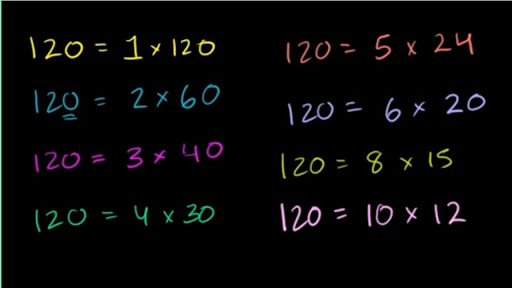 120 = 1 x 120
120 = 2 x 60
120 = 3 x 40
120 = 4 x 30
120 = 5 x 24
120 = 6 x 20
120 = 8 x 15
120 = 10 x 12